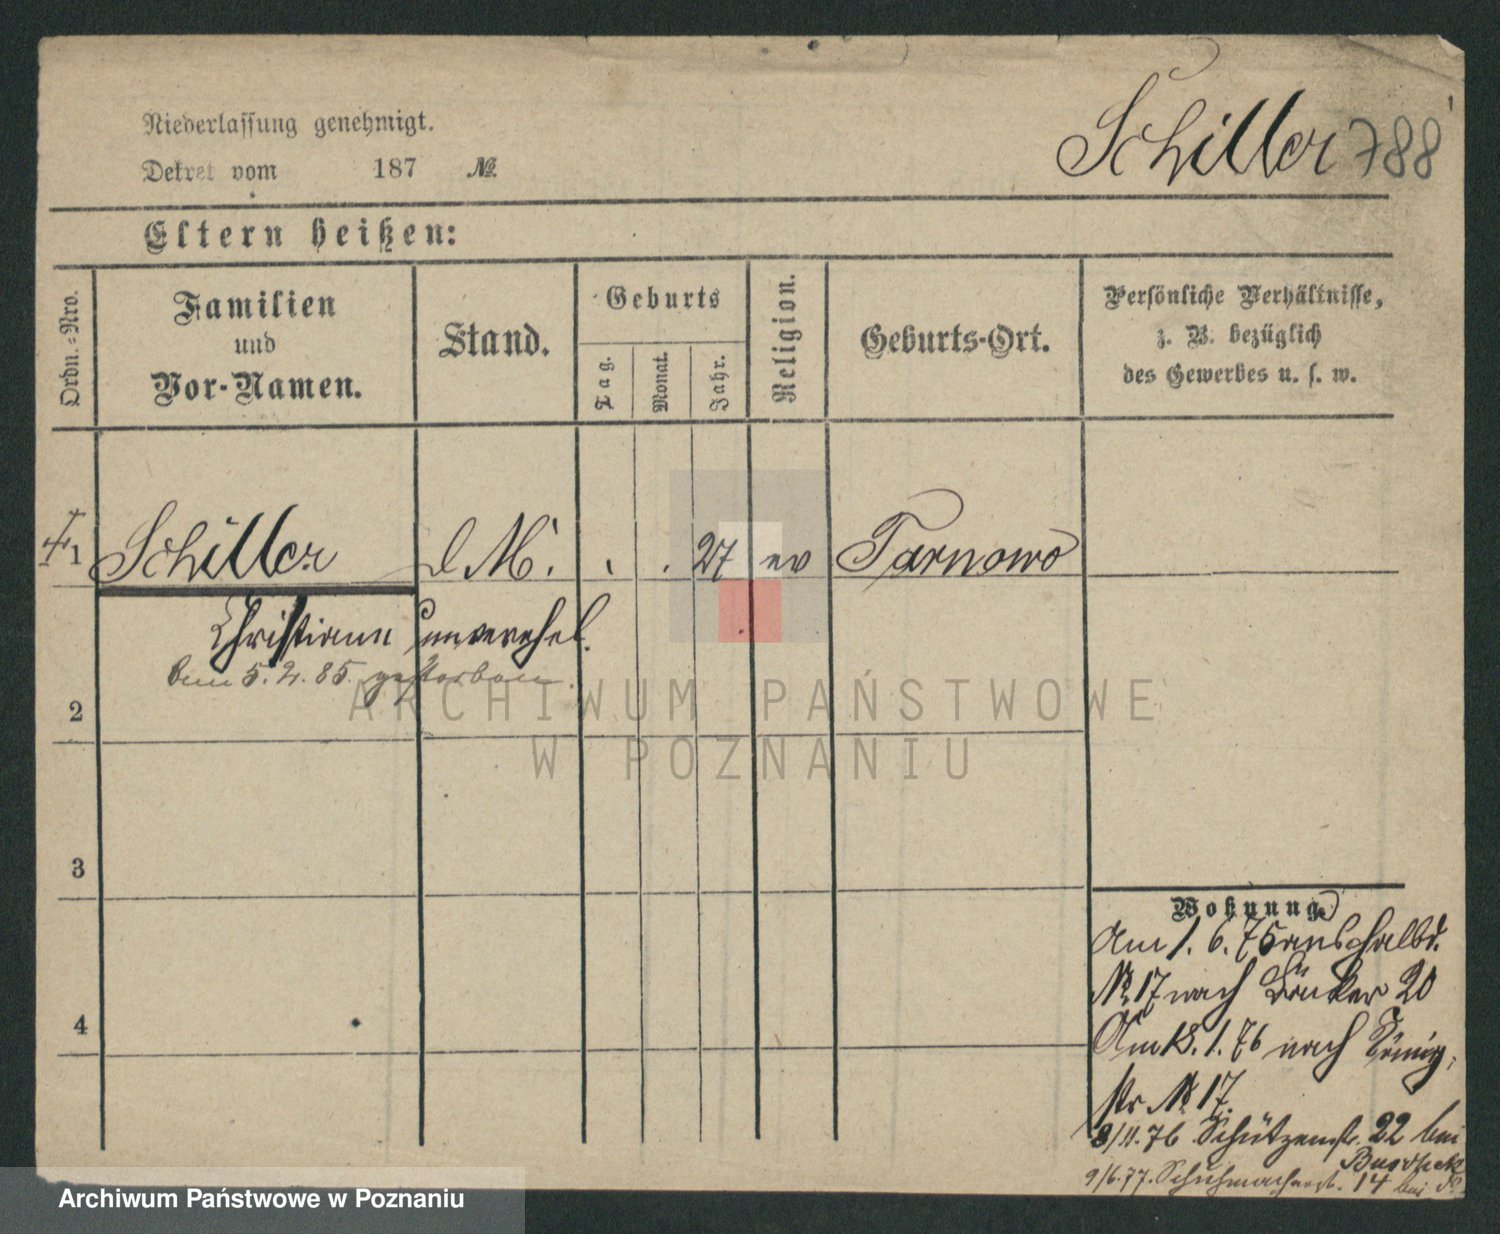 Schiller 788
Niederlassung genehmigt.
Dekret vom 187 №
Eltern heißen:
Ordn.-Nro.
Familien
und
Vor-Namen.
Stand.
Geburts
Tag.
Monat.
Jahr.
Religion.
Geburts-Ort.
Persönliche Verhältnisse,
z. B. bezüglich
des Gewerbes u. s. w.
1 Schiller d M. . . 27 ev Tarnowo
Christiane unverehel.
den 5.2.85. gestorben
2
3
4
Wohnung.
Am 1. 6. 75 aus Halbd.
№ 17 nach 20
Am 18. 1. 76 nach König
str № 17.
8/11. 76 Schützenstr. 22 bei
9/6. 77. Schuhmacherst. 14 bei
ARCHIWUM PAŃSTWOWE
W POZNANIU
Archiwum Państwowe w Poznaniu